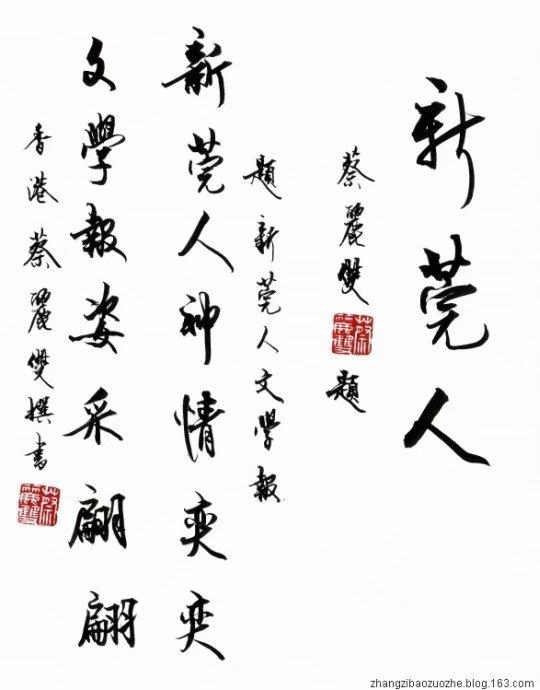 新莞人
蔡麗雙
蔡麗雙
題
題新莞人文學報
新莞人神情奕奕
文學報姿采翩翩
香港蔡麗雙撰書
蔡麗雙
zhangzibaozuozhe.blog.163.com